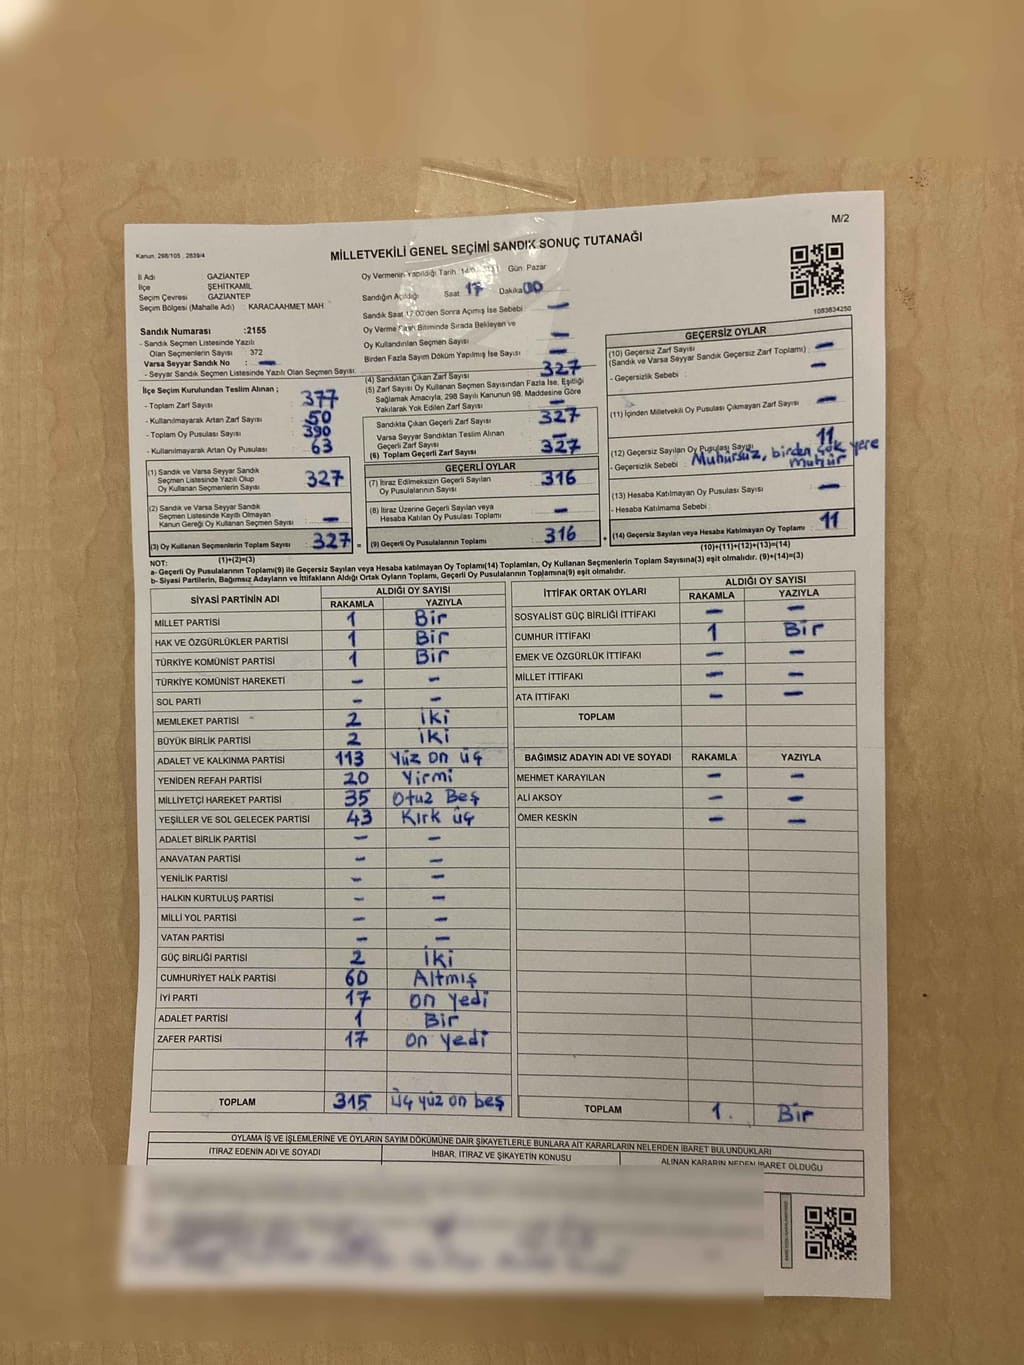 M/2
Kanun: 298/105 ; 2839/4
MİLLETVEKİLİ GENEL SEÇİMİ SANDIK SONUÇ TUTANAĞI
İl Adı GAZİANTEP
İlçe ŞEHİTKAMİL
Seçim Çevresi GAZİANTEP
Seçim Bölgesi (Mahalle Adı) : KARACAAHMET MAH.
Sandık Numarası :2155
- Sandık Seçmen Listesinde Yazılı
Olan Seçmenlerin Sayısı : 372
Varsa Seyyar Sandık No : –
- Seyyar Sandık Seçmen Listesinde Yazılı Olan Seçmen Sayısı:
Oy Vermenin Yapıldığı Tarih Gün: Pazar
Sandığın Açıldığı Saat 17 Dakika 00
Sandık Saat 17:00'den Sonra Açımış İse Sebebi : –
Oy Verme Bitiminde Sırada Bekleyen ve
Oy Kullandırılan Seçmen Sayısı –
Birden Fazla Sayım Döküm Yapılmış İse Sayısı –
1083834250
İlçe Seçim Kurulundan Teslim Alınan ;
- Toplam Zarf Sayısı 377
- Kullanılmayarak Artan Zarf Sayısı 50
- Toplam Oy Pusulası Sayısı 390
- Kullanılmayarak Artan Oy Pusulası 63
(1) Sandık ve Varsa Seyyar Sandık
Seçmen Listesinde Yazılı Olup
Oy Kullanan Seçmenlerin Sayısı 327
(2) Sandık ve Varsa Seyyar Sandık
Seçmen Listesinde Kayıtlı Olmayan
Kanun Gereği Oy Kullanan Seçmen Sayısı –
(3) Oy Kullanan Seçmenlerin Toplam Sayısı 327 =
(4) Sandıktan Çıkan Zarf Sayısı 327
(5) Zarf Sayısı Oy Kullanan Seçmen Sayısından Fazla İse, Eşitliği
Sağlamak Amacıyla, 298 Sayılı Kanunun 98. Maddesine Göre
Yakılarak Yok Edilen Zarf Sayısı –
Sandıkta Çıkan Geçerli Zarf Sayısı 327
Varsa Seyyar Sandıktan Teslim Alınan
Geçerli Zarf Sayısı –
(6) Toplam Geçerli Zarf Sayısı 327
GEÇERLİ OYLAR
(7) İtiraz Edilmeksizin Geçerli Sayılan
Oy Pusulalarının Sayısı 316
(8) İtiraz Üzerine Geçerli Sayılan veya
Hesaba Katılan Oy Pusulası Toplamı –
(9) Geçerli Oy Pusulalarının Toplamı : 316 +
GEÇERSİZ OYLAR
(10) Geçersiz Zarf Sayısı –
(Sandık ve Varsa Seyyar Sandık Geçersiz Zarf Toplamı) :
- Geçersizlik Sebebi : –
(11) İçinden Milletvekili Oy Pusulası Çıkmayan Zarf Sayısı –
(12) Geçersiz Sayılan Oy Pusulası Sayısı 11
- Geçersizlik Sebebi : Mühürsüz, birden çok yere
mühür
(13) Hesaba Katılmayan Oy Pusulası Sayısı –
- Hesaba Katılmama Sebebi :
(14) Geçersiz Sayılan veya Hesaba Katılmayan Oy Toplamı 11
(1)+(2)=(3)
(10)+(11)+(12)+(13)=(14)
NOT:
a- Geçerli Oy Pusulalarının Toplamı(9) ile Geçersiz Sayılan veya Hesaba katılmayan Oy Toplamı(14) Toplamları, Oy Kullanan Seçmenlerin Toplam Sayısına(3) eşit olmalıdır. (9)+(14)=(3)
b- Siyasi Partilerin, Bağımsız Adayların ve İttifakların Aldığı Ortak Oyların Toplamı, Geçerli Oy Pusulalarının Toplamına(9) eşit olmalıdır.
SİYASİ PARTİNİN ADI ALDIĞI OY SAYISI
RAKAMLA YAZIYLA
MİLLET PARTİSİ 1 Bir
HAK VE ÖZGÜRLÜKLER PARTİSİ 1 Bir
TÜRKİYE KOMÜNİST PARTİSİ 1 Bir
TÜRKİYE KOMÜNİST HAREKETİ – –
SOL PARTİ – –
MEMLEKET PARTİSİ 2 iki
BÜYÜK BİRLİK PARTİSİ 2 iki
ADALET VE KALKINMA PARTİSİ 113 Yüz on üç
YENİDEN REFAH PARTİSİ 20 Yirmi
MİLLİYETÇİ HAREKET PARTİSİ 35 Otuz Beş
YEŞİLLER VE SOL GELECEK PARTİSİ 43 Kırk üç
ADALET BİRLİK PARTİSİ – –
ANAVATAN PARTİSİ – –
YENİLİK PARTİSİ – –
HALKIN KURTULUŞ PARTİSİ – –
MİLLİ YOL PARTİSİ – –
VATAN PARTİSİ – –
GÜÇ BİRLİĞİ PARTİSİ 2 İki
CUMHURİYET HALK PARTİSİ 60 Altmış
İYİ PARTİ 17 on yedi
ADALET PARTİSİ 1 Bir
ZAFER PARTİSİ 17 on yedi
TOPLAM 315 üç yüz on beş
İTTİFAK ORTAK OYLARI ALDIĞI OY SAYISI
RAKAMLA YAZIYLA
SOSYALİST GÜÇ BİRLİĞİ İTTİFAKI – –
CUMHUR İTTİFAKI 1 Bir
EMEK VE ÖZGÜRLÜK İTTİFAKI – –
MİLLET İTTİFAKI – –
ATA İTTİFAKI – –
TOPLAM
BAĞIMSIZ ADAYIN ADI VE SOYADI RAKAMLA YAZIYLA
MEHMET KARAYILAN – –
ALİ AKSOY – –
ÖMER KESKİN – –
TOPLAM 1. Bir
OYLAMA İŞ VE İŞLEMLERİNE VE OYLARIN SAYIM DÖKÜMÜNE DAİR ŞİKAYETLERLE BUNLARA AİT KARARLARIN NELERDEN İBARET BULUNDUKLARI
İTİRAZ EDENİN ADI VE SOYADI İHBAR, İTİRAZ VE ŞİKAYETİN KONUSU ALINAN KARARIN NEDEN İBARET OLDUĞU